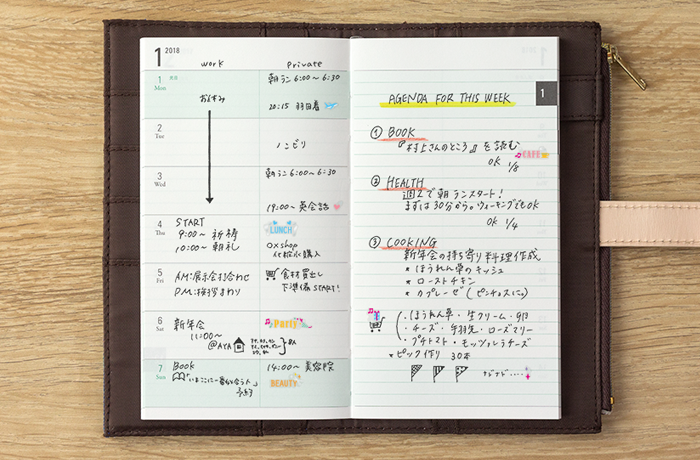 1 2018
work Private
1 Mon
おやすみ
朝ラン 6:00〜6:30
20:15 羽田着
2 Tue
ノンビリ
3 Wed
朝ラン 6:00〜6:30
19:00〜英会話
4 Thu
START
9:00〜 祈祷
10:00〜 朝礼
LUNCH
○×shop
化粧水購入
5 Fri
AM:展示会打合わせ
PM:挨拶まわり
食材買出し
下準備START!
6 Sat
新年会
11:00〜
@AYA
Party
8人
7 Sun
Book
予約
14:00〜 美容院
BEAUTY
1
AGENDA FOR THIS WEEK
① BOOK
『村上さんのところ』を読む
OK 1/8
CAFE
② HEALTH
週2で朝ランスタート!
まずは30分から。ウォーキングでもOK
OK 1/4
③ COOKING
新年会の持ち寄り料理作成
* ほうれん草のキッシュ
* ローストチキン
* カプレーゼ(ピンチョスに)
・ほうれん草・生クリーム・卵
・チーズ・手羽先・ローズマリー
・プチトマト・モッツァレラチーズ
*ピック作り 30本